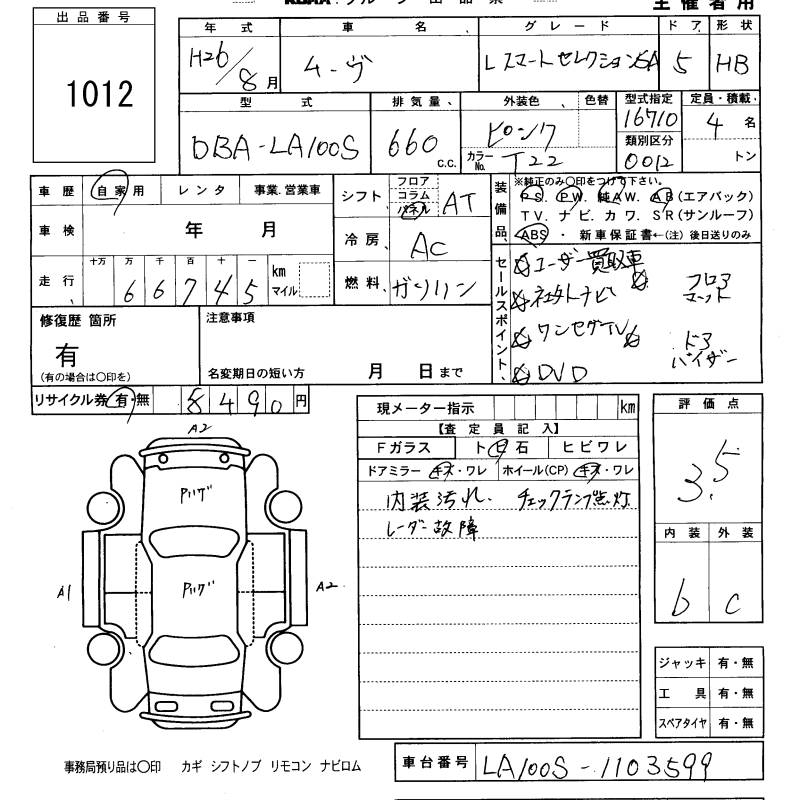 出品番号
1012
年式 車名 グレード ドア 形状
H26/8月 ムーヴ LスマートセレクションSA 5 HB
型式 排気量、 外装色、 色替 型式指定 定員・積載、
DBA-LA100S 660 c.c. ピンク カラーNo. T22 16710 類別区分 0012 4名 トン
車歴 自家用 レンタ 事業.営業車
車検 年 月
走行、 十万 万 千 百 十 一 km マイル
66745
シフト フロア コラム パネル AT
冷房、 AC
燃料、 ガソリン
装備品、 ※純正のみ〇印をつけて下さい。
PS. PW. 純AW. AB(エアバック)
TV. ナビ. カワ. SR(サンルーフ)
ABS ・ 新車保証書←(注) 後日送りのみ
セールスポイント、
☆ユーザー買取車☆
☆社外ナビ フロアマット
☆ワンセグTV☆ ドアバイザー
☆DVD
修復歴 箇所
有
(有の場合は〇印を)
注意事項
名変期日の短い方 月 日まで
リサイクル券 有・無 8490円
現メーター指示 km
【査定員記入】
Fガラス ト目石 ヒビワレ
ドアミラー キズ・ワレ ホイール(CP) キズ・ワレ
内装汚れ. チェックランプ点灯
レーダー故障
評価点
3.5
内装 外装
b c
A2
Pリング
Pリング
A1 A2
ジャッキ 有・無
工具 有・無
スペアタイヤ 有・無
事務局預り品は〇印 カギ シフトノブ リモコン ナビロム
車台番号 LA100S-1103599